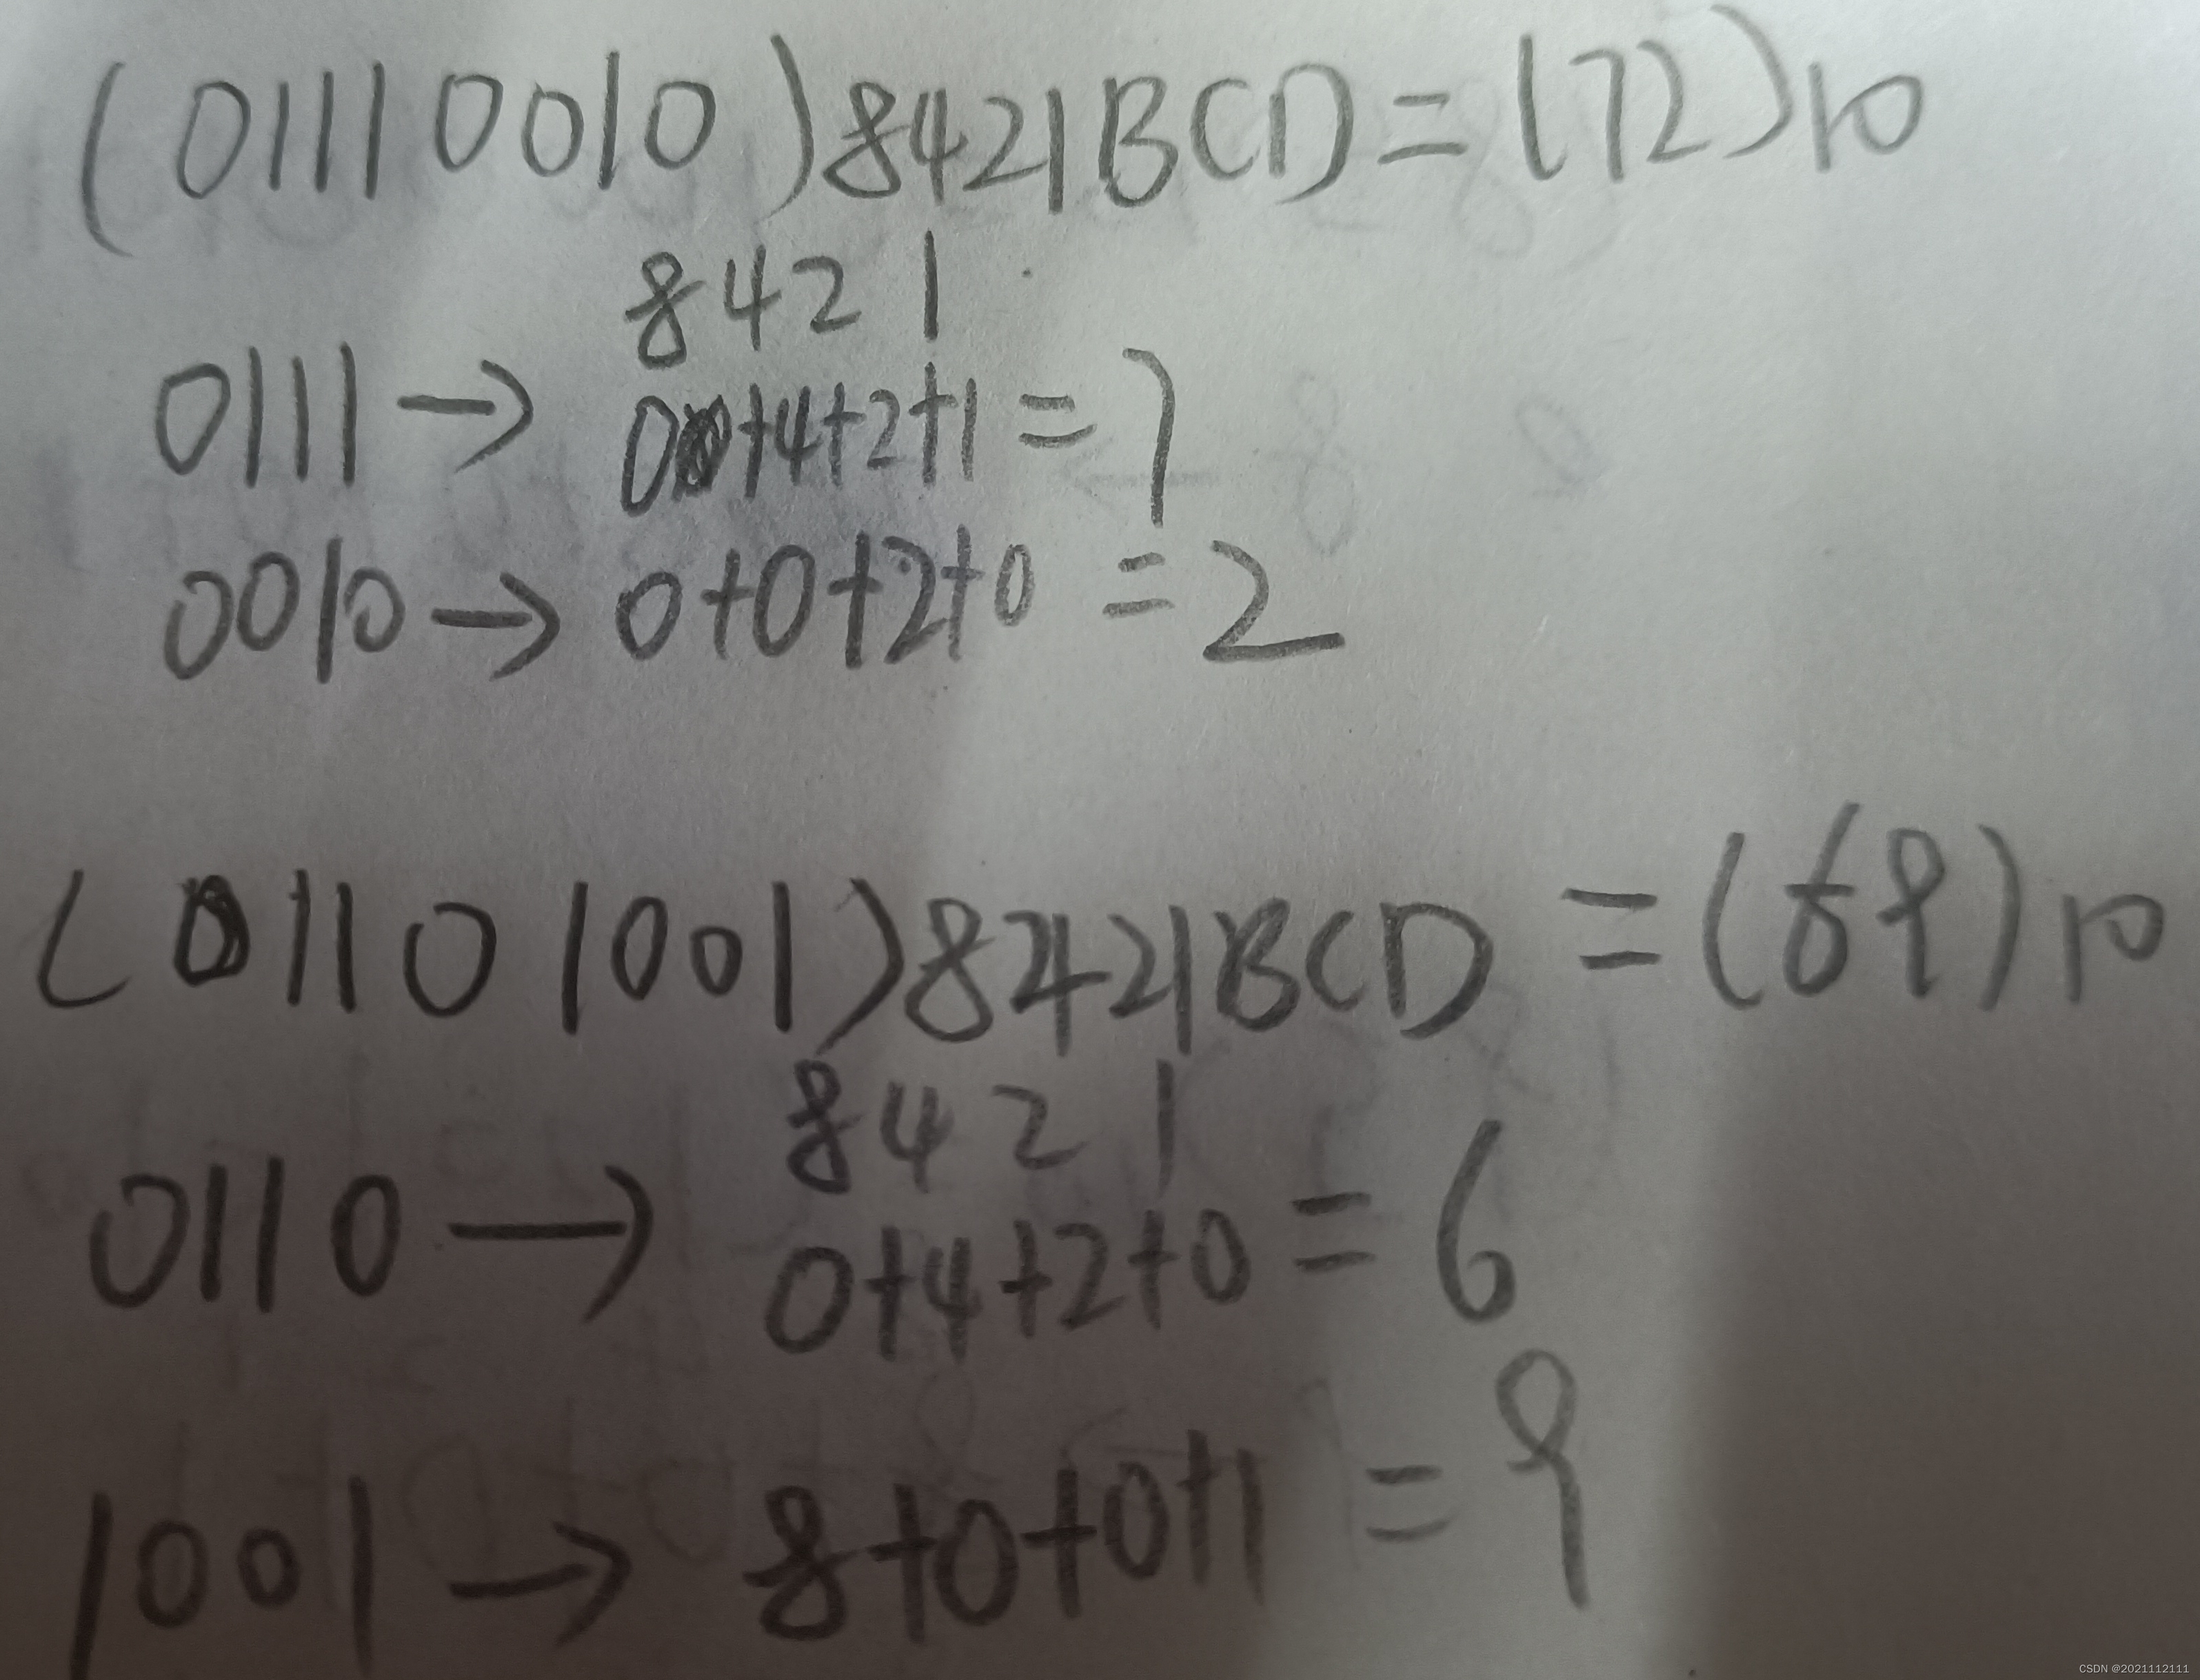 (0111 0010)8421BCD=(72)10
8421
0111→00+4+2+1=7
0010→0+0+2+0=2
(0110 1001)8421BCD=(69)10
8421
0110→0+4+2+0=6
1001→8+0+0+1=9
CSDN @2021112111